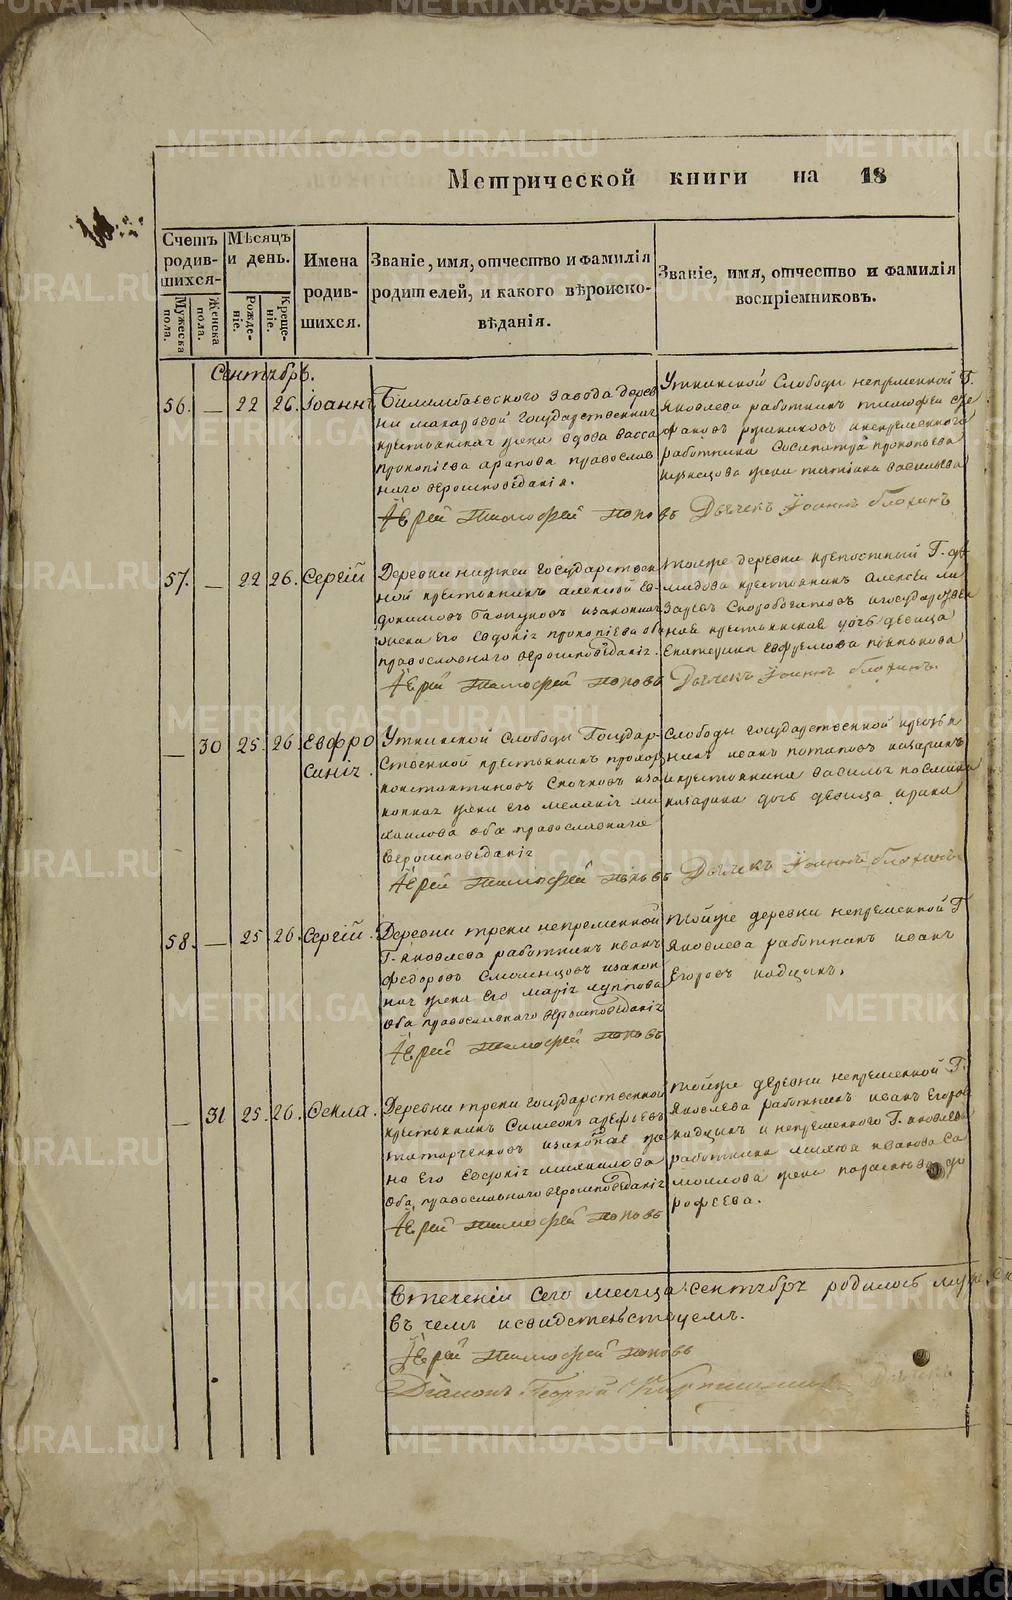 Метрической книги на 18
Счетъ родив-шихся.
Мужеска пола.
Женска пола.
Мѣсяцъ и день.
Рожде-ніе.
Креще-ніе.
Имена родив-шихся.
Званіе, имя, отчество и фамилія
родителей, и какого вѣроиспо-
вѣданія.
Званіе, имя, отчество и фамилія
воспріемниковъ.
Сентябрь.
56. — 22 26. Іоаннъ
Билимбаевского завода дерев
ни макаровой государственнаг
крестьянскаг жена вдова васса
прокопіева арапова православ
наго вѣроисповѣданія.
Іерей Тимофей Поповъ
Уткинской Слободы непременной Г.
Яковлева работникъ тимофей сте
фановъ ружниковъ инепременного
работника Сосипатра прокопьева
кузнецова жена татіана васильева
Дьячекъ Іоаннъ Блохинъ
57. — 22 26. Сергій
Деревни нижней государствен
ной крестьянинъ алексей ев
докимовъ изаконная
жена его евдокія прокопіева оба
православнаго вѣроисповѣданія.
Іерей Тимофей Поповъ
тойже деревни крепостный Г. де
мидова крестьянинъ алексей ла
заревъ Скоробогатовъ игосударствен
ной крестьянской дочь девица
Екатерина евфремова
Дьячекъ Іоаннъ Блохинъ.
— 30 25. 26 Евфро
синія.
Уткинской Слободы Государ-
ственной крестьянинъ прохоръ
константиновъ Скочковъ иза
конная жена его меланія ми
хаилова оба православнаго
вѣроисповѣданія
Іерей Тимофей Поповъ
Слободы государственной крестья
нинъ иванъ потаповъ казаринъ
икрестьянина василья
казарина дочь девица ирина
Дьячекъ Іоаннъ Блохинъ
58. — 25. 26. Сергій.
Деревни треки непременной
Г. яковлева работникъ иванъ
федоровъ Смоленцовъ изакон
ная жена его марія луппова
оба православнаго вѣроисповѣданія
Іерей Тимофей Поповъ
тойже деревни непременной Г
яковлева работникъ иванъ
Егоровъ кадцынъ.
— 31 25. 26. Ѳекла.
Деревни треки государственной
крестьянинъ Симеонъ арефьевъ
татарченковъ изаконная же
на его Евдокія михаилова
оба православнаго вѣроисповѣданія
Іерей Тимофей Поповъ
тойже деревни непременной Г.
яковлева работникъ иванъ Егоровъ
кадцынъ и непременного Г. яковлева
работника иванова Са
моилова жена до
рофеева.
Втеченіи сего месяца сентября родилось муж.
въ чемъ исвидетельствуемъ.
Іерей Тимофей Поповъ
Діаконъ Георгій
METRIKI.GASO-URAL.RU